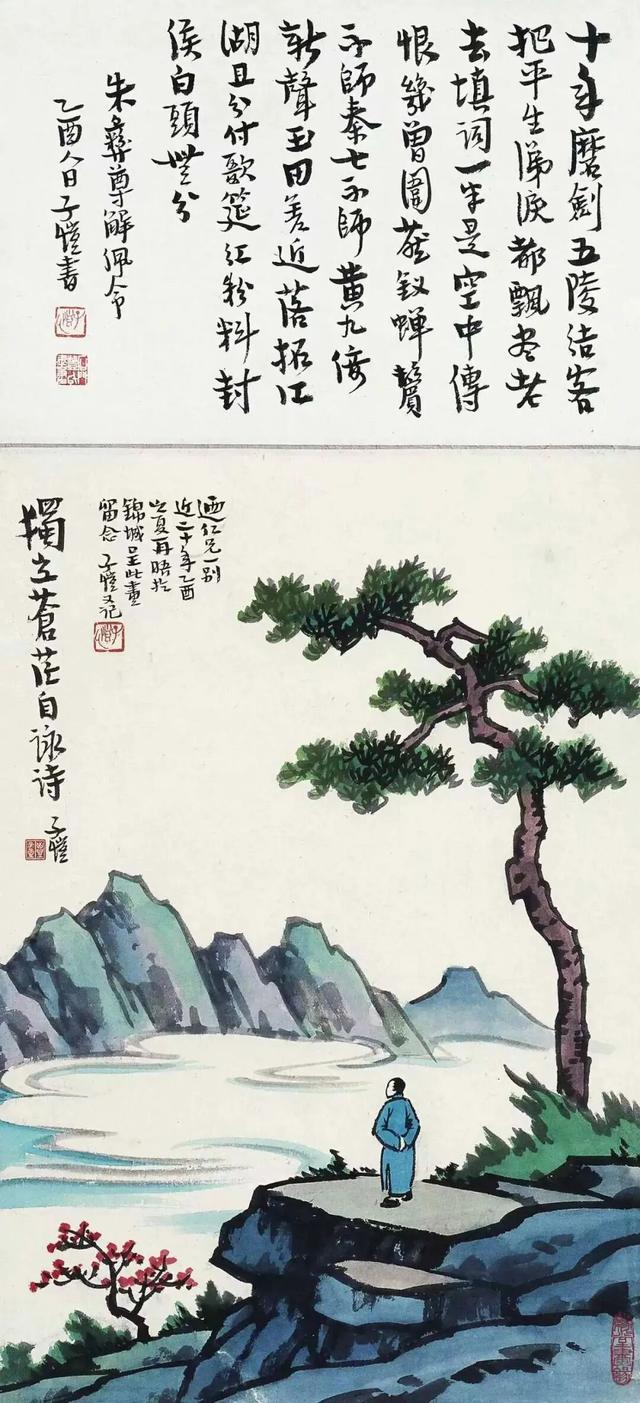 十年磨劍五陵結客
把平生涕淚都飄盡老
去填詞一半是空中傳
恨幾曾圍燕釵蟬鬢
不師秦七不師黃九倚
新聲玉田差近落拓江
湖且分付歌筵紅粉料封
侯白頭無分
朱彝尊解佩令
乙酉人日子愷書
仁兄一別
近二十年乙酉
之夏再晤於
錦城呈此畫
留念 子愷又記
獨立蒼茫自詠詩 子愷